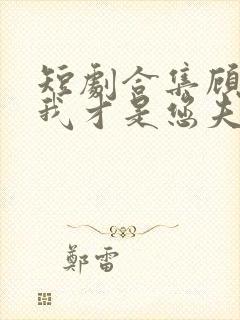 短劇合集顧
我才是您夫
鄭雷